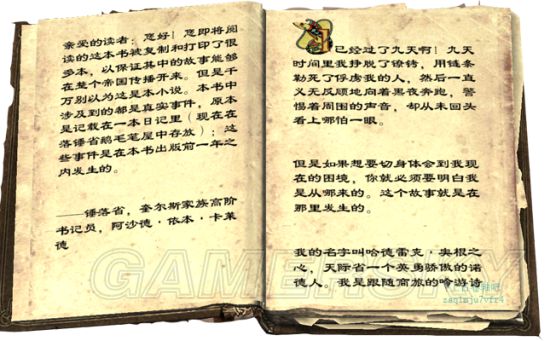 亲爱的读者：您好！您即将阅
读的这本书被复制和打印了很
多本，以保证其中的故事能够
在整个帝国传播开来。但是千
万别以为这是本小说。本书中
涉及到的都是真实事件，原本
是记载在一本日记里（现在在
落锤省鹅毛笔屋中存放）；这
些事件是在本书出版前一年之
内发生的。
——锤落省，奎尔斯家族高阶
书记员，阿沙德·依本·卡莱
德
已经过了九天啊！九天
时间里我挣脱了镣铐，用链条
勒死了俘虏我的人，然后一直
义无反顾地向着黑夜奔跑，警
惕着周围的声音，却从未回头
看上哪怕一眼。
但是如果想要切身体会到我现
在的困境，你就必须要明白我
是从哪来的。这个故事就是在
那里发生的。
我的名字叫哈德雷克·奥根之
心，天际省一个英勇骄傲的诺
德人。我是跟随商旅的吟游诗
GAMERSKY
zaqimju7vfr4